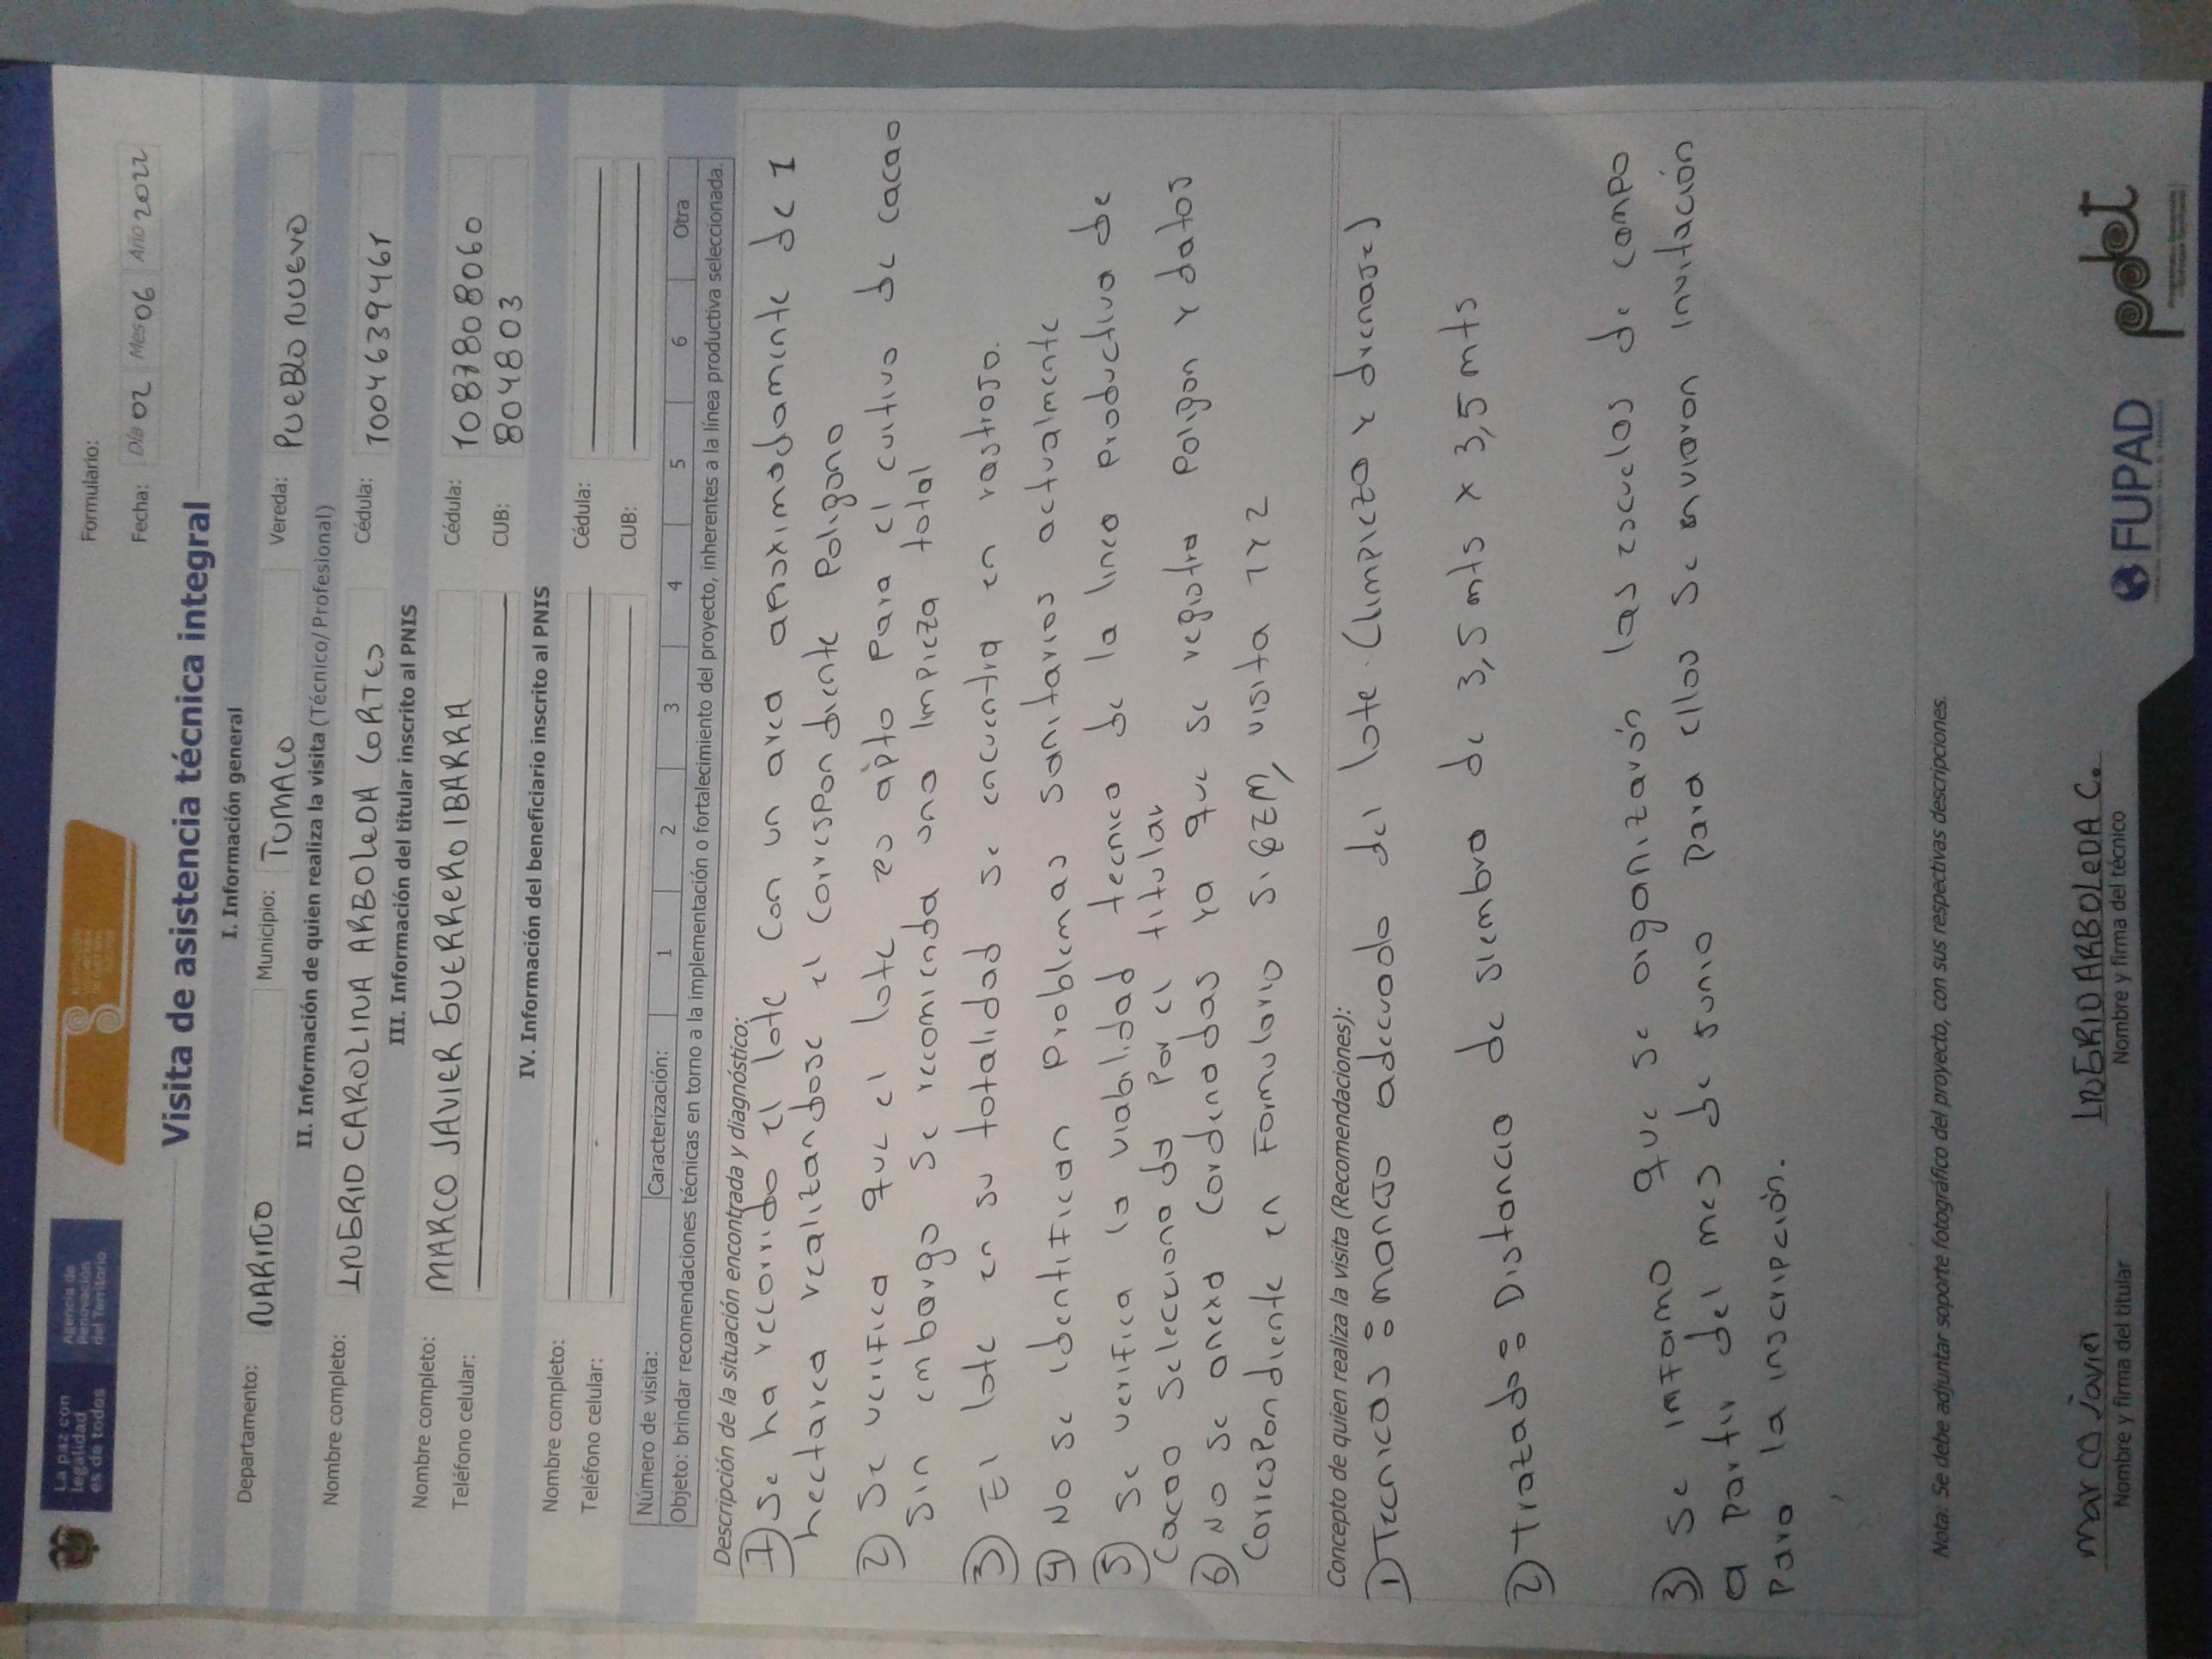 La paz con
legalidad
es de todos
Agencia de
Renovación
del Territorio
Formulario:
Fecha: Día 02 Mes 06 Año 2022
Visita de asistencia técnica integral
I. Información general
Departamento: NARIÑO Municipio: TUMACO Vereda: PUEBLO NUEVO
II. Información de quien realiza la visita (Técnico/Profesional)
Nombre completo: INGRID CAROLINA ARBOLEDA CORTES Cédula: 1004639461
III. Información del titular inscrito al PNIS
Nombre completo: MARCO JAVIER GUERRERO IBARRA Cédula: 1087808060
Teléfono celular: CUB: 804803
IV. Información del beneficiario inscrito al PNIS
Nombre completo: Cédula:
Teléfono celular: CUB:
Número de visita: Caracterización: 1 2 3 4 5 6 Otra
Objeto: brindar recomendaciones técnicas en torno a la implementación o fortalecimiento del proyecto, inherentes a la línea productiva seleccionada.
Descripción de la situación encontrada y diagnóstico:
1) Se ha recorrido el lote con un area aproximadamente de 1
hectarea realizandose el correspondiente poligono
2) Se verifica que el lote es apto para el cultivo de cacao
sin embargo se recomienda una limpieza total
3) El lote en su totalidad se encuentra en rastrojo.
4) No se identifican problemas sanitarios actualmente
5) Se verifica la viabilidad tecnica de la linea productiva de
cacao seleccionada por el titular
6) No se anexa cordenadas ya que se registra poligon y datos
correspondiente en formulario SIGEM, visita 1 y 2
Concepto de quien realiza la visita (Recomendaciones):
1) Tecnicas: manejo adecuado del lote. (limpieza y drenajes)
2) Trazado: Distancia de siembra de 3,5 mts x 3,5 mts
3) Se imformo que se organizarón las escuelas de campo
a partir del mes de junio para ellos se enviaron invitación
para la inscripción.
Nota: Se debe adjuntar soporte fotográfico del proyecto, con sus respectivas descripciones.
marco javier
Nombre y firma del titular
INGRID ARBOLEDA C.
Nombre y firma del técnico
FUPAD
pdet